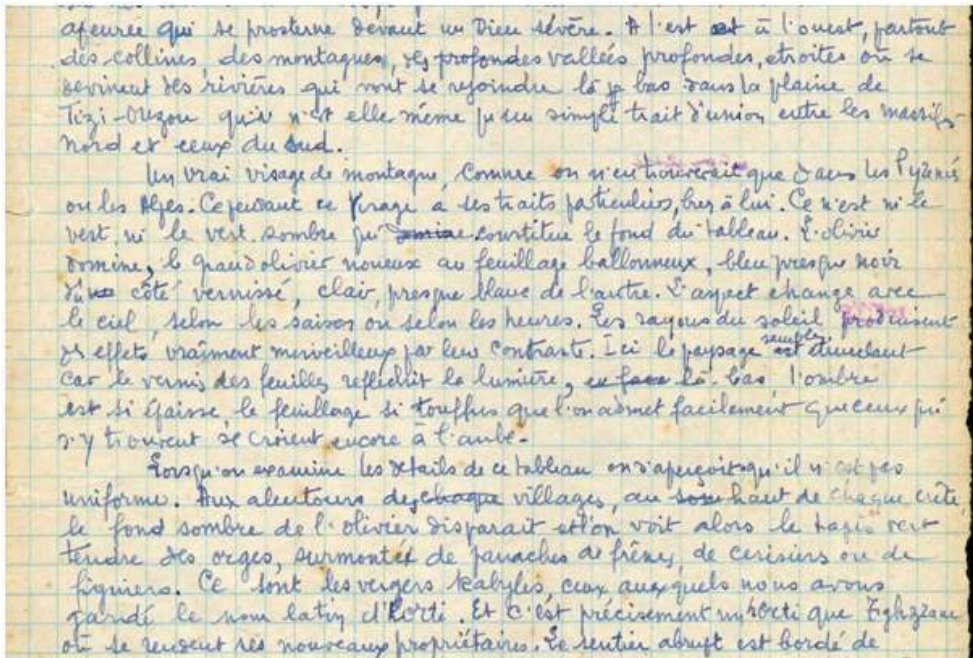 apeurée qui se prosterne devant un Dieu sévère. A l'est et à l'ouest, partout
des collines, des montagnes, des profondes vallées profondes, étroites où se
devinent des rivières qui vont se rejoindre là bas dans la plaine de
Tizi-Ouzou qui n'est elle même qu'un simple trait d'union entre les massifs
nord et ceux du sud.
Un vrai visage de montagne, comme on n'en trouverait que dans les Pyrénées
ou les Alpes. Cependant ce visage a ses traits particuliers, bien à lui. Ce n'est ni le
vert, ni le vert sombre qui constitue le fond du tableau. L'olivier
domine, le grand olivier noueux au feuillage ballonneux, bleu presque noir
d'un côté vernissé, clair, presque blanc de l'autre. L'aspect change avec
le ciel, selon les saisons ou selon les heures. Les rayons du soleil produisent
des effets vraiment merveilleux par leur contraste. Ici le paysage semble est
car le vernis des feuilles réfléchit la lumière, en face là-bas l'ombre
est si épaisse le feuillage si touffus que l'on admet facilement que ceux qui
s'y trouvent se croient encore à l'aube.
Lorsqu'on examine les détails de ce tableau on s'aperçoit qu'il n'est pas
uniforme. Aux alentours des chaque villages, au haut de chaque crête
le fond sombre de l'olivier disparait et l'on voit alors le tapis vert
tendre des orges, surmontée de panaches de frênes, de cerisiers ou de
figuiers. Ce sont les vergers kabyles, ceux auxquels nous avons
gardé le nom latin d'horti. Et c'est précisément un horti que
où se rendent ses nouveaux propriétaires. Le sentier abrupt est bordé de